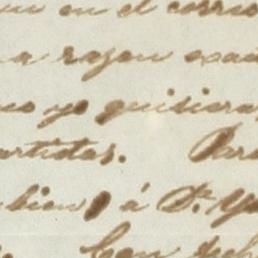 en el correo
a razon exac
yo quisiera
artidas. Para
bien á Dr. Y
Con